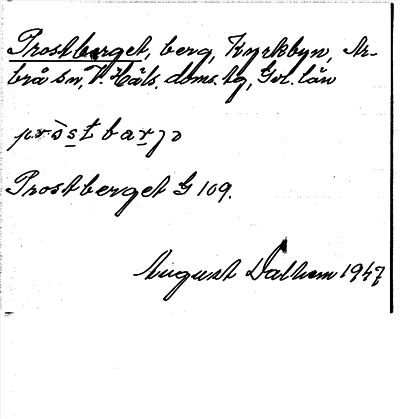 Prostberget, berg, Kyrkbyn, Ar-
brå sn, V. Häls. doms. tg, Gvl. län
pròstbarjə
Prostberget G 109.
August Dalhem 1947